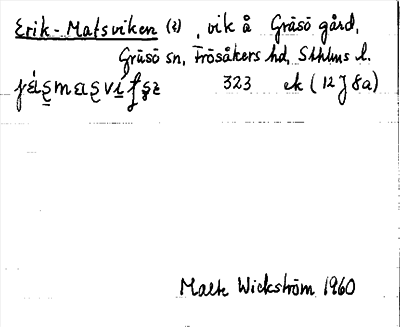 Erik-Matsviken (2), vik å Gräsö gård,
Gräsö sn, Frösåkers hd, Sthlms l.
323 ek (12J8a)
Malte Wickström 1960